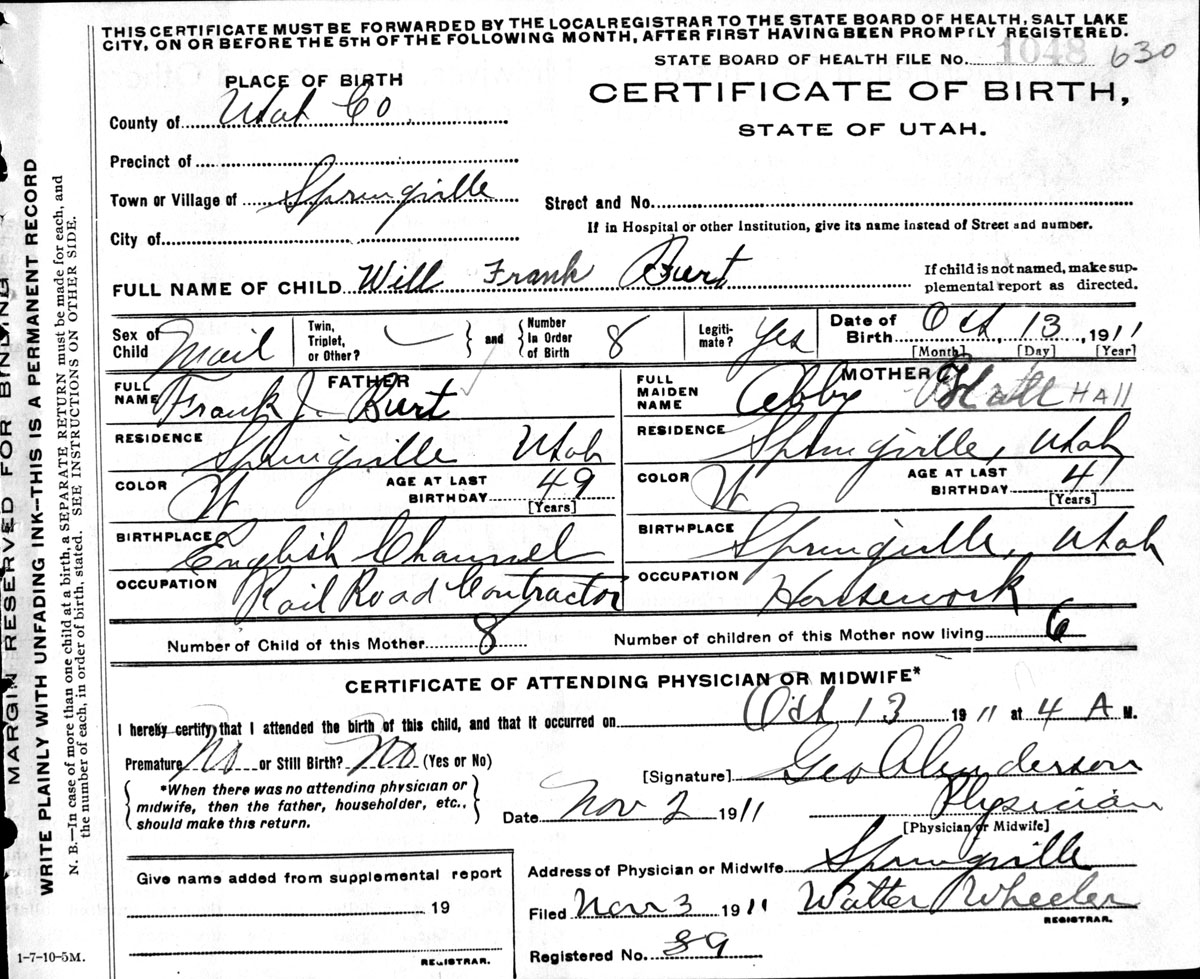 THIS CERTIFICATE MUST BE FORWARDED BY THE LOCAL REGISTRAR TO THE STATE BOARD OF HEALTH, SALT LAKE
CITY, ON OR BEFORE THE 5TH OF THE FOLLOWING MONTH, AFTER FIRST HAVING BEEN PROMPTLY REGISTERED.
STATE BOARD OF HEALTH FILE No. 1048 630
PLACE OF BIRTH
CERTIFICATE OF BIRTH,
STATE OF UTAH.
County of Utah Co.
Precinct of
Town or Village of Springville
Street and No.
City of
If in Hospital or other Institution, give its name instead of Street and number.
FULL NAME OF CHILD Will Frank Burt
If child is not named, make sup-
plemental report as directed.
Sex of Child Mail
Twin, Triplet, or Other?
and
Number in Order of Birth 8
Legiti-mate? Yes
Date of Birth Oct, 13, 1911
[Month] [Day] [Year]
FATHER
FULL NAME Frank J. Burt
RESIDENCE Springville Utah
COLOR W
AGE AT LAST BIRTHDAY 49
[Years]
BIRTHPLACE English Channel
OCCUPATION Rail Road Contractor
MOTHER
FULL MAIDEN NAME Abby Hall HALL
RESIDENCE Springville, Utah
COLOR W
AGE AT LAST BIRTHDAY 41
[Years]
BIRTHPLACE Springville, Utah
OCCUPATION Housework
Number of Child of this Mother 8
Number of children of this Mother now living 6
CERTIFICATE OF ATTENDING PHYSICIAN OR MIDWIFE*
I hereby certify that I attended the birth of this child, and that it occurred on Oct 13 1911 at 4 A M.
Premature No or Still Birth? No (Yes or No)
*When there was no attending physician or
midwife, then the father, householder, etc.,
should make this return.
[Signature] Geo Anderson
Date Nov 2 1911
Physician
[Physician or Midwife]
Address of Physician or Midwife Springville
Filed Nov 3 1911 Walter Wheeler
REGISTRAR.
Registered No. 89
Give name added from supplemental report
19
REGISTRAR.
1-7-10-5M.
MARGIN RESERVED FOR BINDING
WRITE PLAINLY WITH UNFADING INK—THIS IS A PERMANENT RECORD
N. B.—In case of more than one child at a birth, a SEPARATE RETURN must be made for each, and
the number of each, in order of birth, stated. SEE INSTRUCTIONS ON OTHER SIDE.